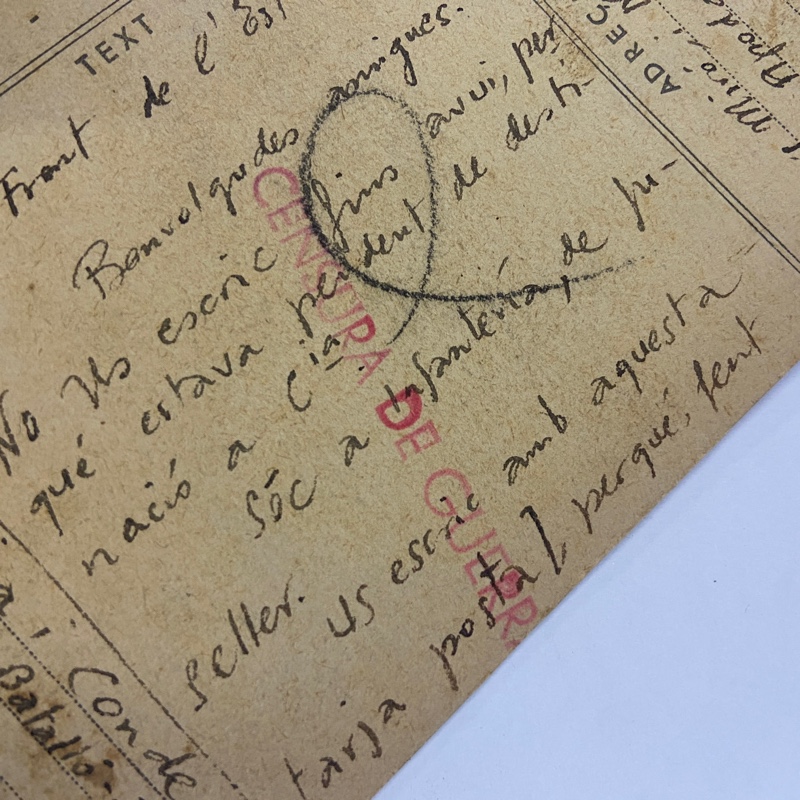 TEXT
Front de l'
Benvolgudes amigues.
No us escric fins avui, per
què estava pendent de desti-
nació a Cia.
Sóc a Infantería, de fu-
seller.
Us escric amb aquesta
tarja postal perquè, fent
CENSURA DE GUERR
ADREÇ
Miró
Conde
Batalló.